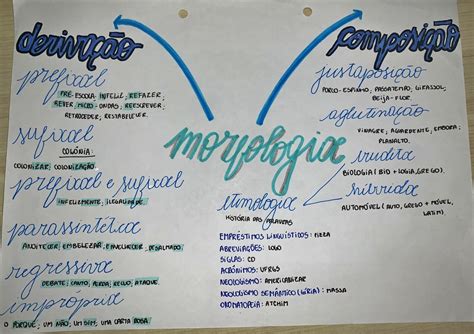 derivação
prefixal
PRÉ-ESCOLA, INFELIZ, REFAZER,
REVER, MICRO-ONDAS, REESCREVER,
RETROCEDER, RESTABELECER.
sufixal
COLÔNIA:
COLONIZAR, COLONIZAÇÃO.
prefixal e sufixal
INFELIZMENTE, ILEGALIDADE.
parassintética
ANOITECER, EMBELEZAR, ENVELHECER, DESALMADO.
regressiva
DEBATE, CANTO, PERDA, RECUO, ATAQUE.
imprópria
O PORQUÊ, UM NÃO, UM SIM, UMA CARTA ROSA.
morfologia
composição
justaposição
PORCO-ESPINHO, PASSATEMPO, GIRASSOL,
BEIJA-FLOR.
aglutinação
VINAGRE, AGUARDENTE, EMBORA,
PLANALTO.
erudita
BIOLOGIA (BIO + LOGIA, GREGO).
híbrida
AUTOMÓVEL (AUTO, GREGO + MÓVEL,
LATIM)
etimologia
HISTÓRIA DAS PALAVRAS
EMPRÉSTIMOS LINGUÍSTICOS: PIZZA
ABREVIAÇÕES:
SIGLAS: CD
ACRÔNIMOS: UFRGS
NEOLOGISMO: AMERICANIZAR
NEOLOGISMO SEMÂNTICO (GÍRIA): MASSA
ONOMATOPEIA: ATCHIM